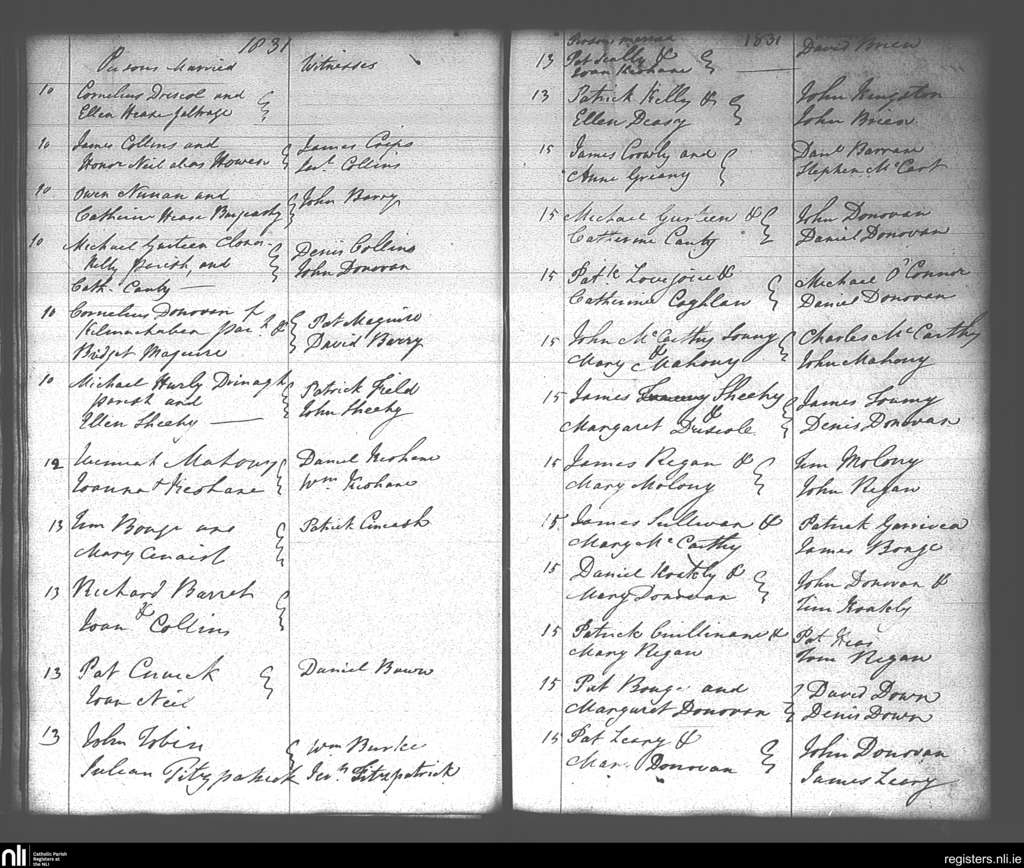 1831
Persons Married Witnesses
10 Cornelius Driscol and
Ellen
10 James Collins and James Crips
Honor Neil alias Howen Jert. Collins
10 Owen Nunan and John Barry
Catherine
10 Michael Gurteen Clona- Denis Collins
kilty parish, and John Donovan
Cath. Canty —
10 Cornelius Donovan of Pat Maguire
&
Bridget Maguire David Barry
10 Michael Hurly Drinagh Patrick Field
parish and John Sheehy
Ellen Sheehy —
12 Mahony Daniel Keohane
Joanna Keohane Wm Keohane
13 Tim Bouge and Patrick
Mary
13 Richard Barret
&
Joan Collins
13 Pat Daniel Bawn
Joan Neil
13 John Tobin Wm Burke
Julian Fitzpatrick Fitzpatrick
1831
Persons married David Brien
13 Pat Scally &
Joan Keohane —
13 Patrick Kelly & John Kingston
Ellen Deasy John Brien
15 James Crowly and Danl Barran
Anne Greany Stephen McCart
15 Michael Gurteen & John Donovan
Catherine Canty Daniel Donovan
15 Patk Lovejoice & Michael O'Connor
Catherine Coghlan Daniel Donovan
15 John McCarthy Young Charles McCarthy
&
Mary Mahony John Mahony
15 James Sheehy James Young
&
Margaret Driscole Denis Donovan
15 James Regan & Jim Molony
Mary Molony John Regan
15 James Sullivan & Patrick
Mary McCarthy James Bouge
15 Daniel Koakely & John Donovan &
Mary Donovan Tim Koakely
15 Patrick Cuillinane & Pat
Mary Regan Tom Regan
15 Pat Bouge and David Down
Margaret Donovan Denis Down
15 Pat Leary & John Donovan
Mary Donovan James Leary
nli
Catholic Parish
Registers at
the NLI
registers.nli.ie